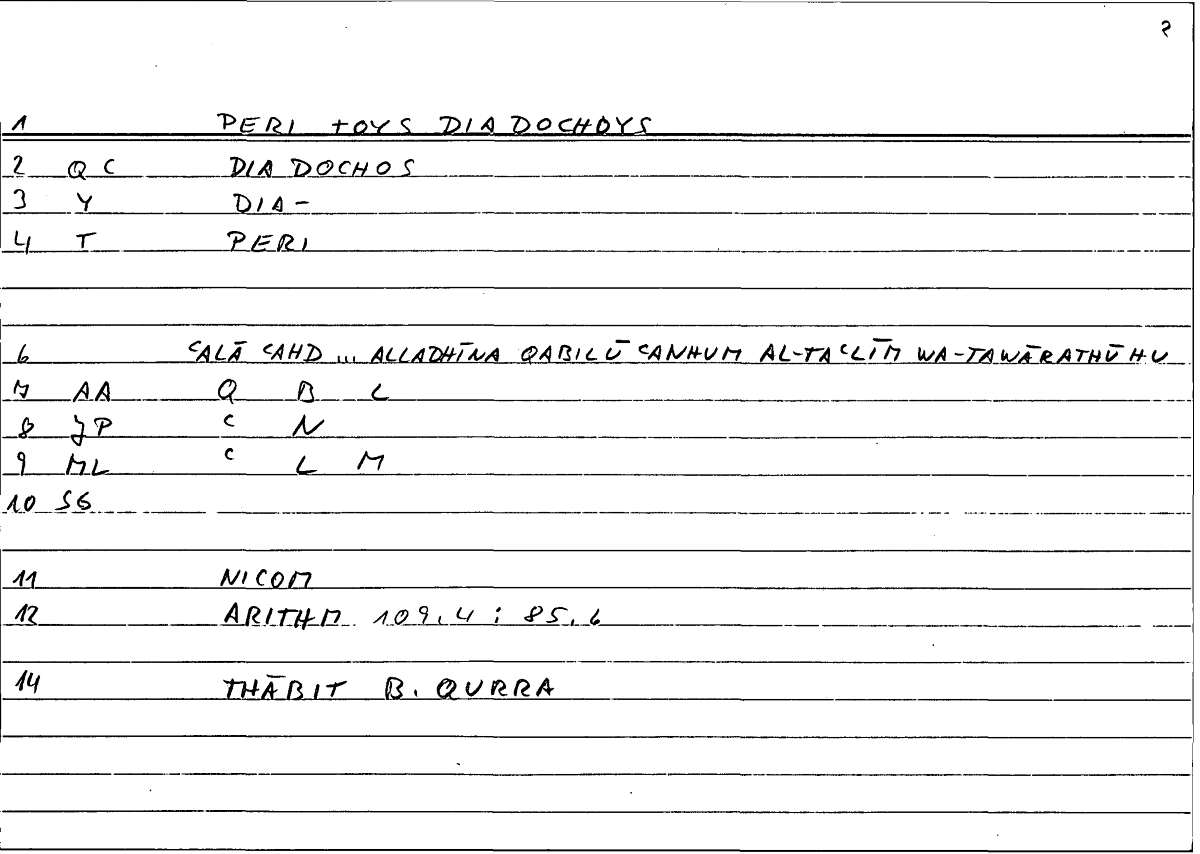 2
1 PERI TOYS DIADOCHOYS
2 QC DIADOCHOS
3 Y DIA-
4 T PERI
6 ʿALĀ ʿAHD ... ALLADHĪNA QABILŪ ʿANHUM AL-TAʿLĪM WA-TAWĀRATHŪHU
7 AA Q B L
8 JP ʿ N
9 ML ʿ L M
10 SG
11 NICOM
12 ARITHM 109.4 : 85.6
14 THĀBIT B. QURRA